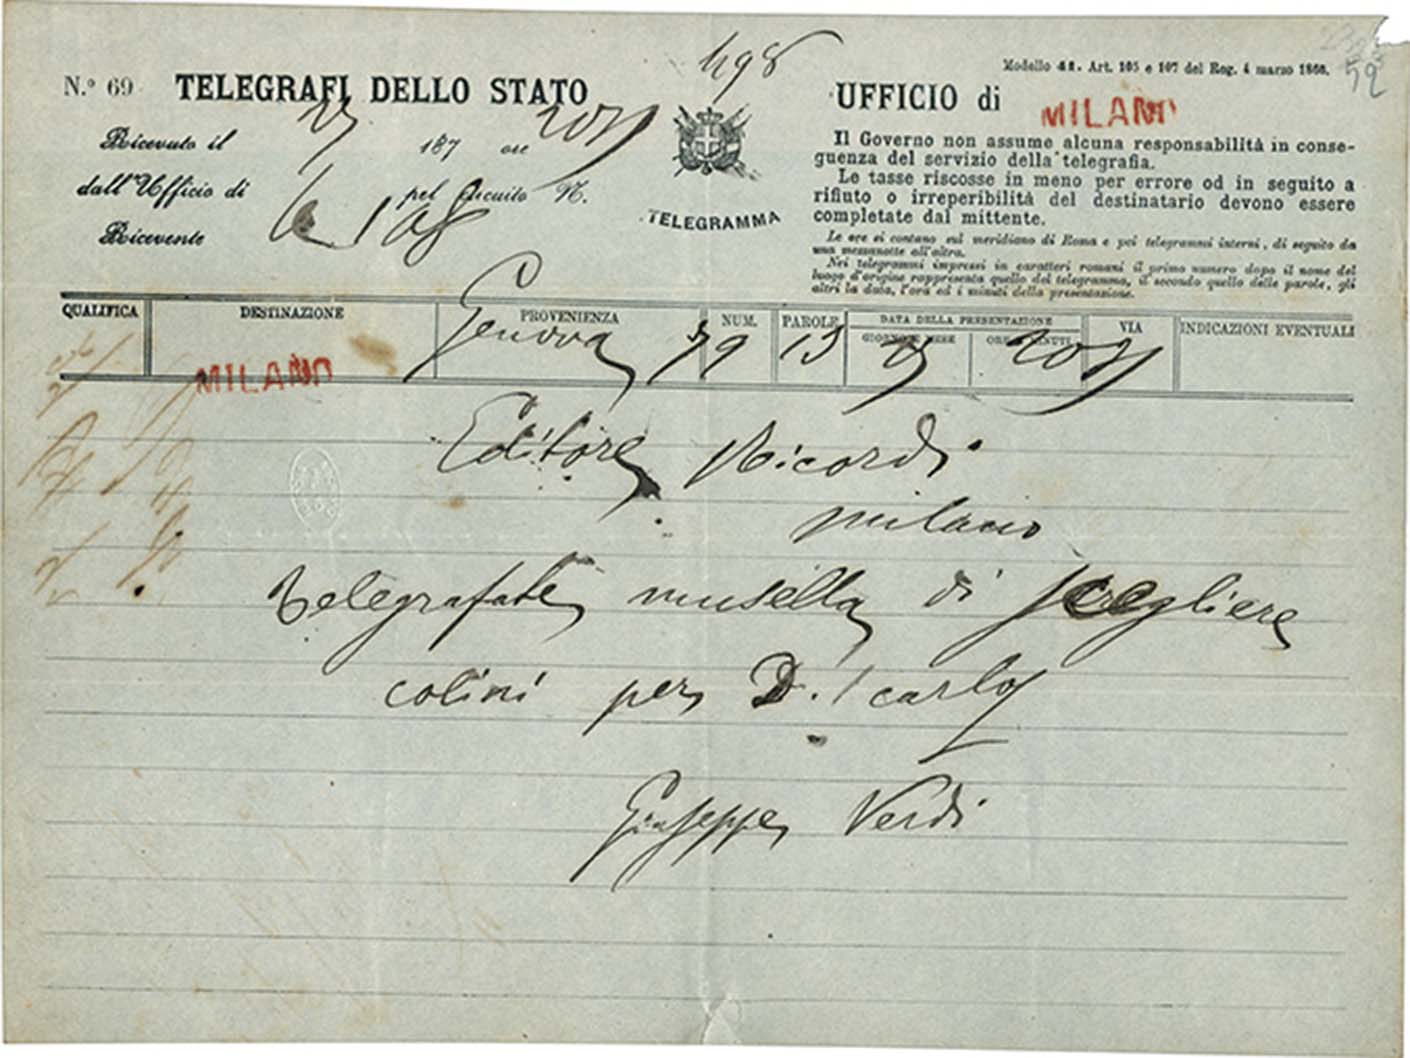 498
N.° 69 TELEGRAFI DELLO STATO
Ricevuto il 187 ore
dall'Ufficio di pel Circuito N.
Ricevente
TELEGRAMMA
Modello 41. Art. 105 e 107 del Reg. 4 marzo 1866.
UFFICIO di MILANO
Il Governo non assume alcuna responsabilità in conse-
guenza del servizio della telegrafia.
Le tasse riscosse in meno per errore od in seguito a
rifiuto o irreperibilità del destinatario devono essere
completate dal mittente.
Le ore si contano sul meridiano di Roma e pei telegrammi interni, di seguito da
una mezzanotte all'altra.
Nei telegrammi impressi in caratteri romani il primo numero dopo il nome del
luogo d'origine rappresenta quello del telegramma, il secondo quello delle parole, gli
altri la data, l'ora ed i minuti della presentazione.
QUALIFICA DESTINAZIONE PROVENIENZA NUM. PAROLE DATA DELLA PRESENTAZIONE VIA INDICAZIONI EVENTUALI
GIORNO E MESE ORE E MINUTI
MILANO Genova 79 13
Editore Ricordi
milano
Telegrafate musella di sceegliere
colini per D. carlo
Giuseppe Verdi